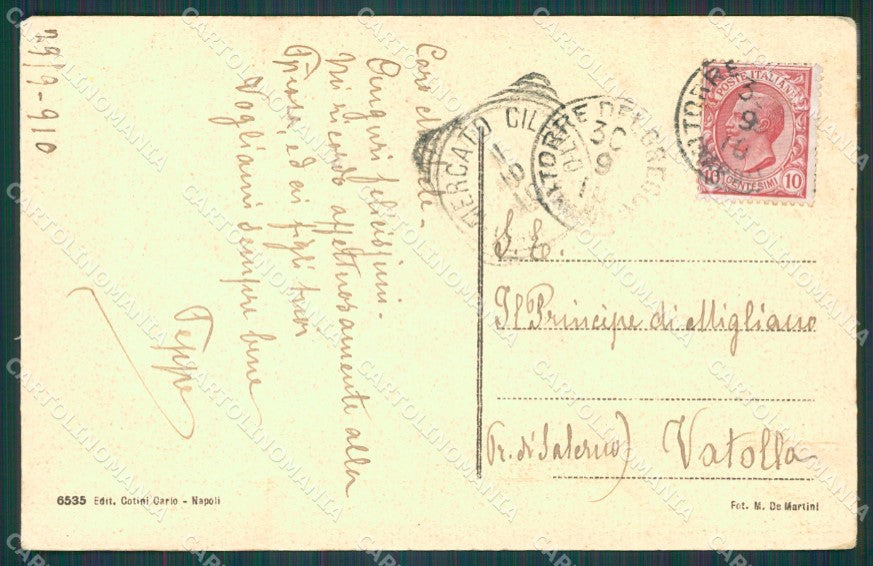 29/9-910
Caro Michele -
Auguri felicissimi -
Mi ricordo affettuosamente alla
Sposa ed ai figli tuoi
Vogliami sempre bene
Peppe
MERCATO CILENTO
1
10
TORRE DEL GRECO
30
9
TORRE
POSTE ITALIANE
10 CENTESIMI 10
S. E.
Il Principe di Migliano
(Pr. di Salerno) Vatolla
6535 Edit. Cotini Carlo - Napoli
Fot. M. De Martini
CARTOLINOMANIA